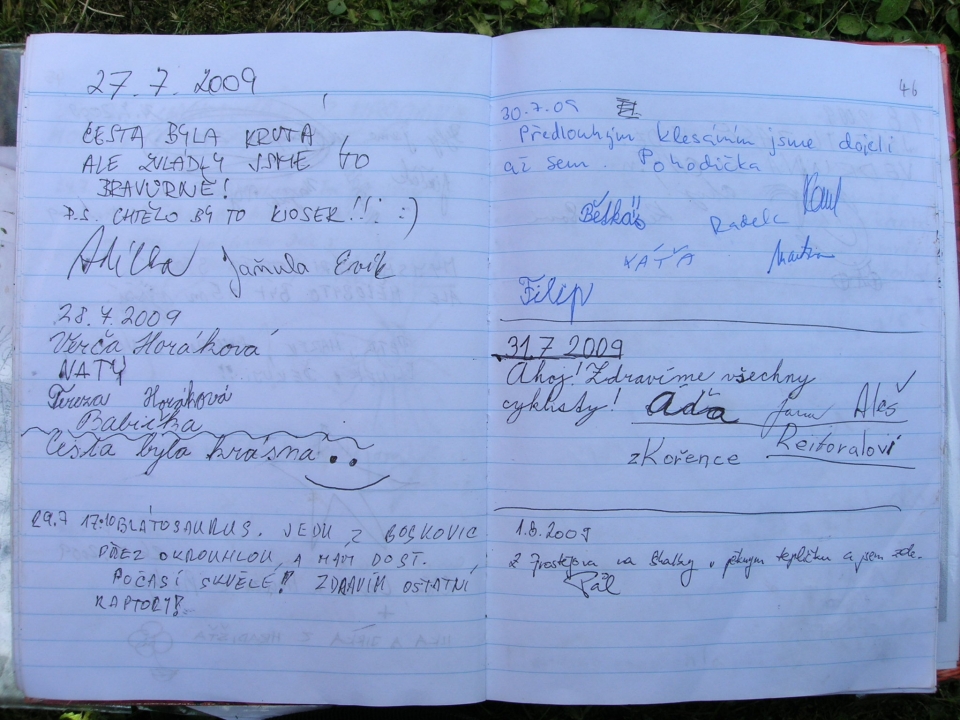 27. 7. 2009
CESTA BYLA KRUTÁ
ALE ZVLÁDLY JSME TO
BRAVŮRNĚ!
P.S. CHTĚLO BY TO KIOSEK!!! :)
Jaňula Evik
28.7.2009
Verča Horáková
NATY
Tereza Horáková
Babička
Cesta byla krásna
29.7 17:10 BLÁTOSAURUS. JEDU Z BOSKOVIC
PŘEZ OKROUHLOU A MÁM DOST.
POČASÍ SKVĚLÉ!! ZDRAVÍM OSTATNÍ
RAPTORY!!
46
30.7.09
Předlouhým klesáním jsme dojeli
až sem. Pohodička
Běťka!!
Radek
KÁŤA
Martin
Filip
31.7 2009
Ahoj! Zdravíme všechny
cyklisty! Áďa Jana Aleš
Reitoralovi
z Kořence
1.8.2009
z Prostějova na Skalky v pěkným teplíčku a jsem zde.
Pál